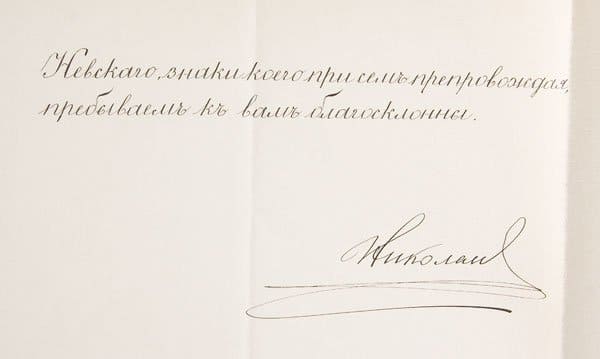 Невскаго, знаки коего при семъ препровождая,
пребываемъ къ вамъ благосклонны.
Николай